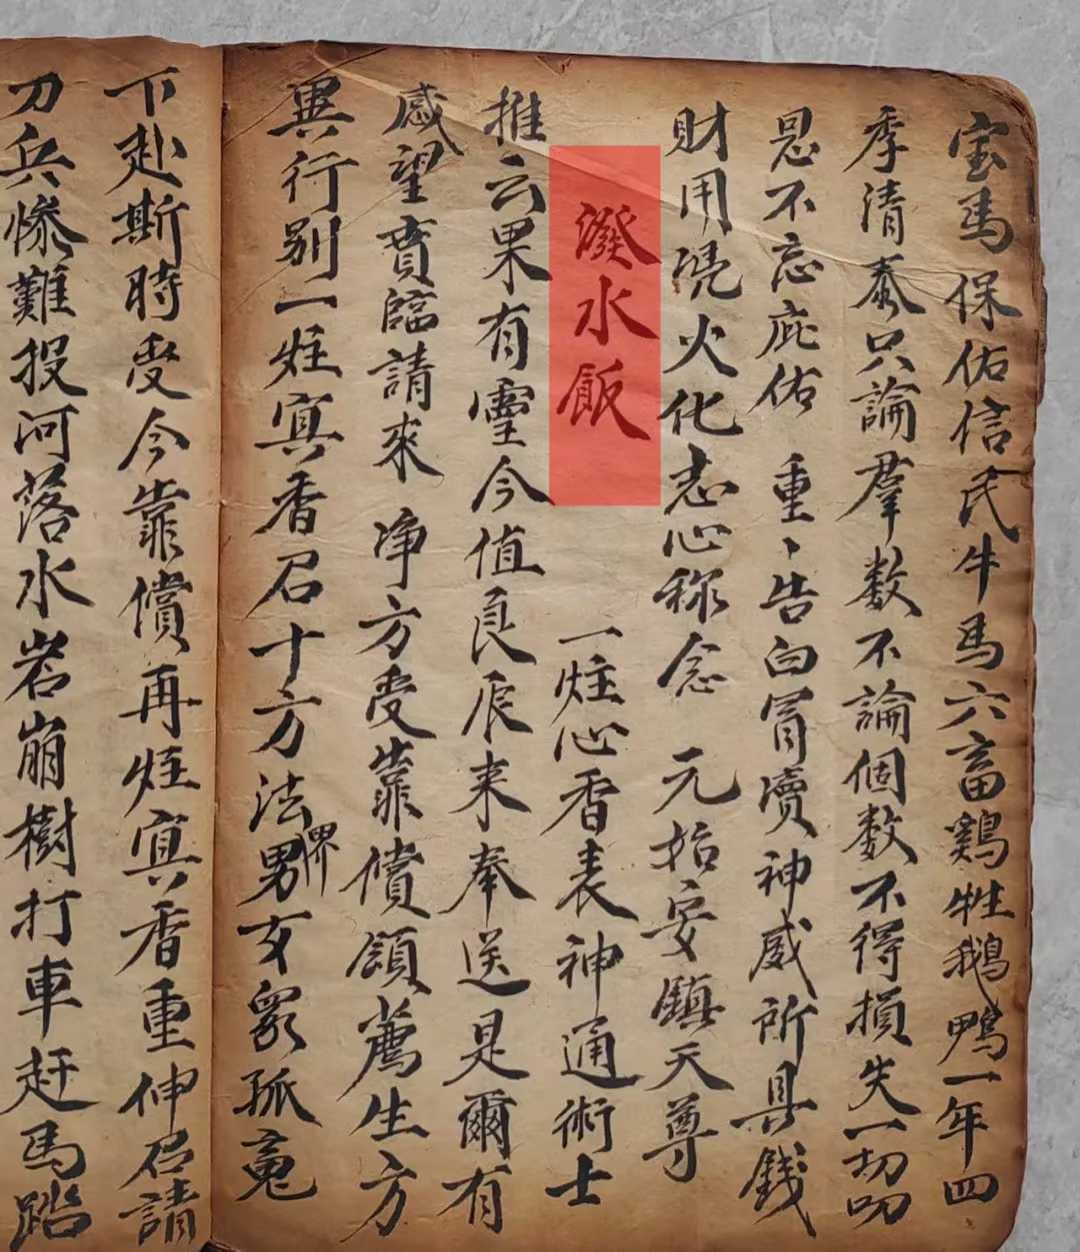 宝馬保佑信氏牛馬六畜鷄牲鵝鴨一年四
季清泰只論羣数不論個数不得損失一切叨
恩不忘庇佑 重、告白冐凟神威所具錢
財用凭火化志心称念 元始安鎮天尊
潑水飯
一炷心香表神通術士
推云果有靈今值良辰来奉送是爾有
感望賁臨請來 净方受靠償領薦生方
異行别一炷寘香召十方法界男女眾孤䰟
下赴斯時受今靠償再炷寘香重伸召請
刀兵惨難投河落水岩崩樹打車赶馬踏